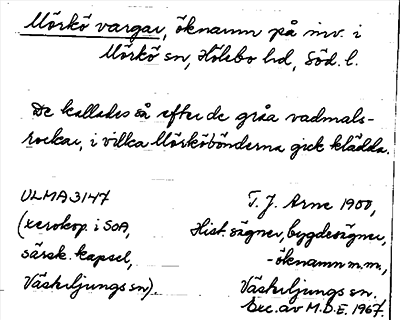 Mörkö vargar, öknamn på inv. i
Mörkö sn, Hölebo hd, Söd. l.
De kallades så efter de gråa vadmals-
rockar, i vilka Mörköbönderna gick klädda.
ULMA 3147
(xerokop. i SOA,
särsk. kapsel,
Västerljungs sn).
T. J. Arne 1900,
Hist. sägner, bygdesägner,
-öknamn m.m.,
Västerljungs sn.
Exc. av M.D.E. 1967.